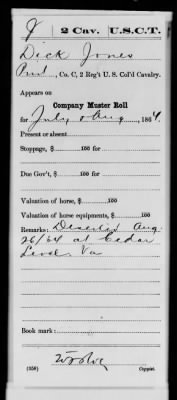 J | 2 Cav. | U.S.C.T.
Dick Jones
Pvt, Co. C, 2 Reg't U. S. Col'd Cavalry.
Appears on
Company Muster Roll
for July & Aug, 1864.
Present or absent
Stoppage, $ 100 for
Due Gov't, $ 100 for
Valuation of horse, $ 100
Valuation of horse equipments, $ 100
Remarks: Deserted Aug
26/64 at Cedar
Level Va
Book mark:
(358) Copyist.